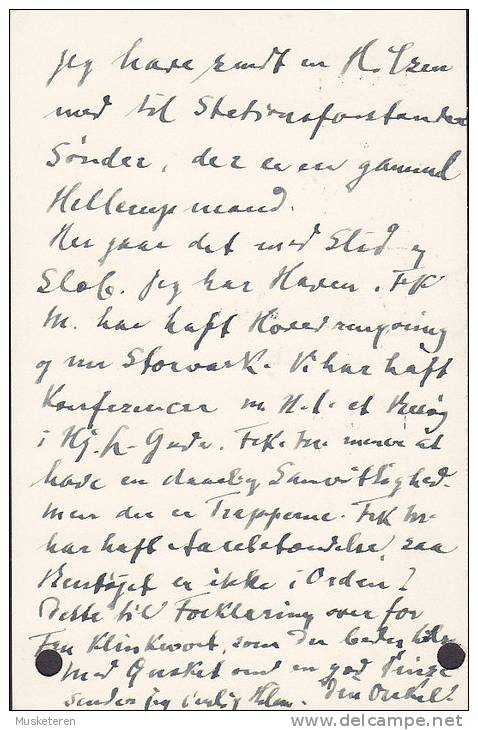 jeg have sendt en Hilsen
med til Stationsforstander
Sønder, der er en gammel
Hellerupmand.
Her gaar det med Slid og
Slæb. Jeg har Haven, Frk
M. har haft Hovedrengøring
og nu Storvask. Vi har haft
Konferencer m. H. t. et Besøg
i Hj. L- Gade. Frk. M. mener at
have en daarlig Samvittighed
men der er Trapperne. Frk M.
har haft Aarebetændelse, saa
Bentøjet er ikke i Orden!
Dette til Forklaring over for
Fru Klinkwort, som du bedes hilse
Med Ønsket om en god Pinse
sender jeg Hilsen. Din Onkel
Musketeren
DELCAMPE.NET